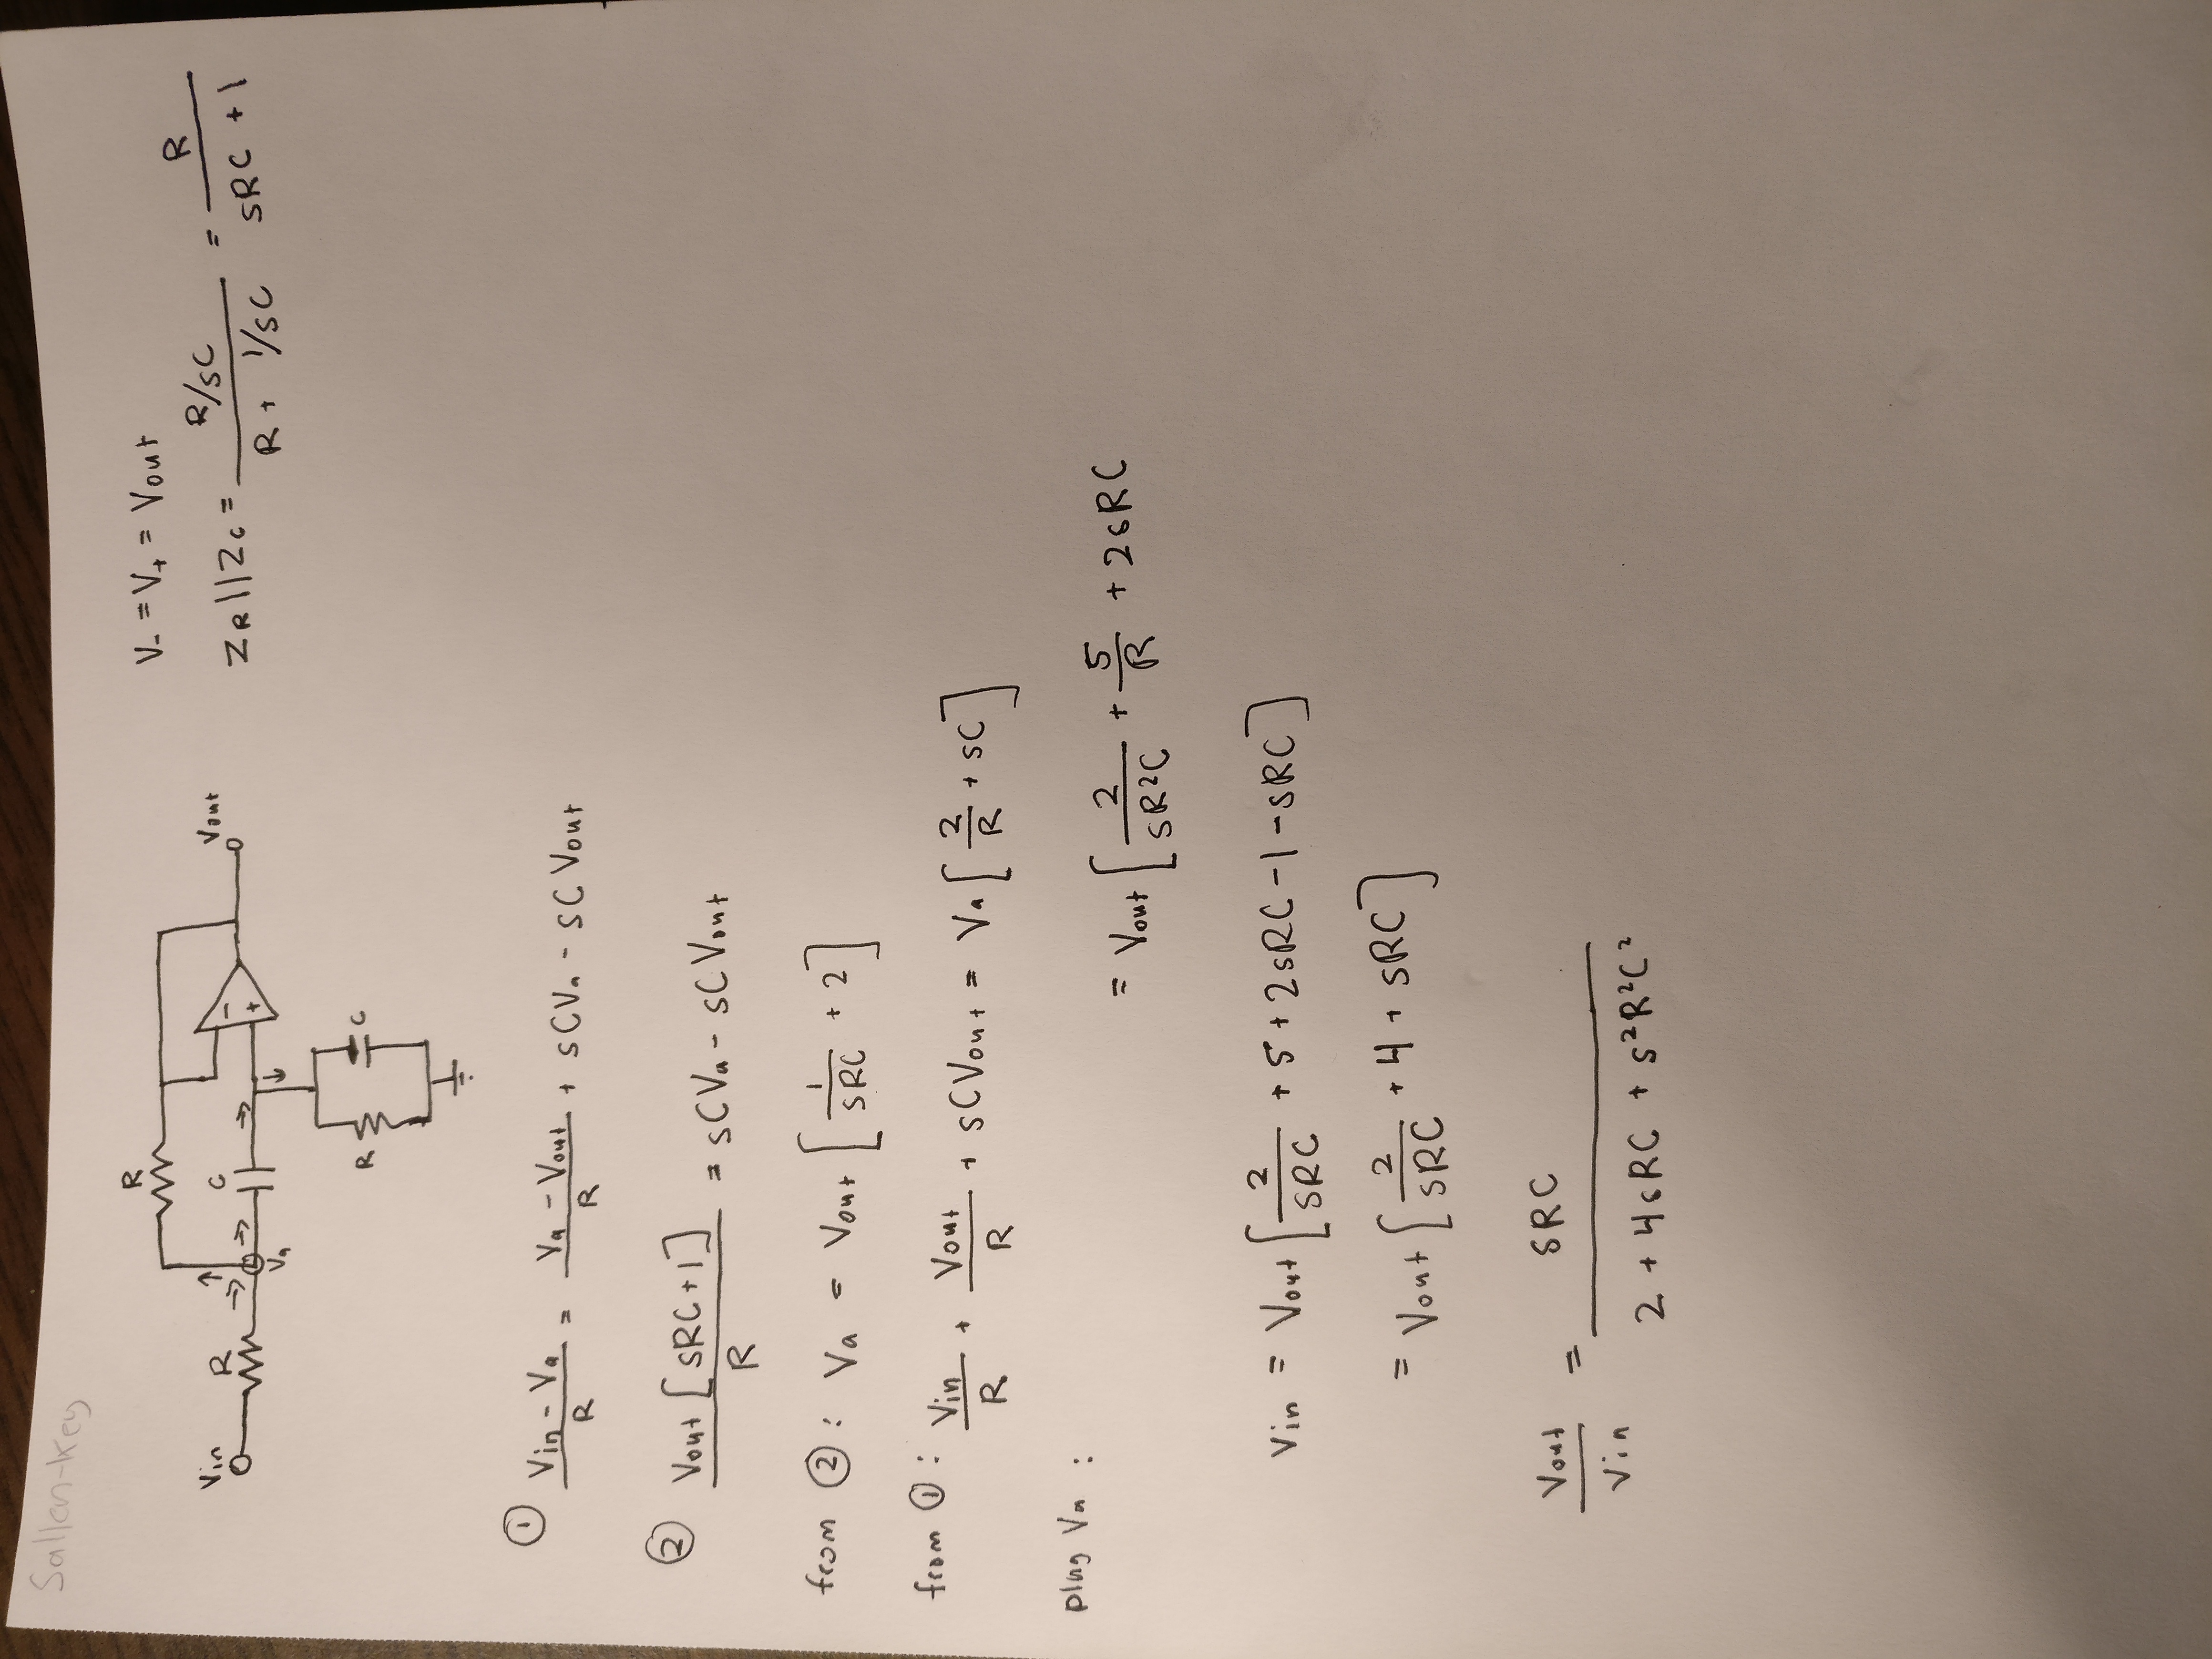 Sallen-Key
R
Vin
R
C
Vout
Va
-
+
R
C
V- = V+ = Vout
ZR||ZC = (R/sC)/(R + 1/sC) = R/(sRC + 1)
① (Vin - Va)/R = (Va - Vout)/R + sCVa - sCVout
② Vout[sRC+1]/R = sCVa - sCVout
from ②: Va = Vout [1/(sRC) + 2]
from ①: Vin/R + Vout/R + sCVout = Va[2/R + sC]
plug Va :
= Vout[2/(sR²C) + 5/R + 2sRC
Vin = Vout[2/(sRC) + 5 + 2sRC - 1 - sRC]
= Vout[2/(sRC) + 4 + sRC]
Vout/Vin = sRC/(2 + 4sRC + s²R²C²)